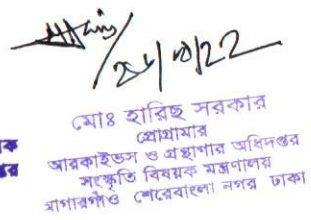 ২৮/৮/22
মোঃ হারিছ সরকার
প্রোগ্রামার
আরকাইভস ও গ্রন্থাগার অধিদপ্তর
সংস্কৃতি বিষয়ক মন্ত্রণালয়
আগারগাঁও শেরেবাংলা নগর ঢাকা